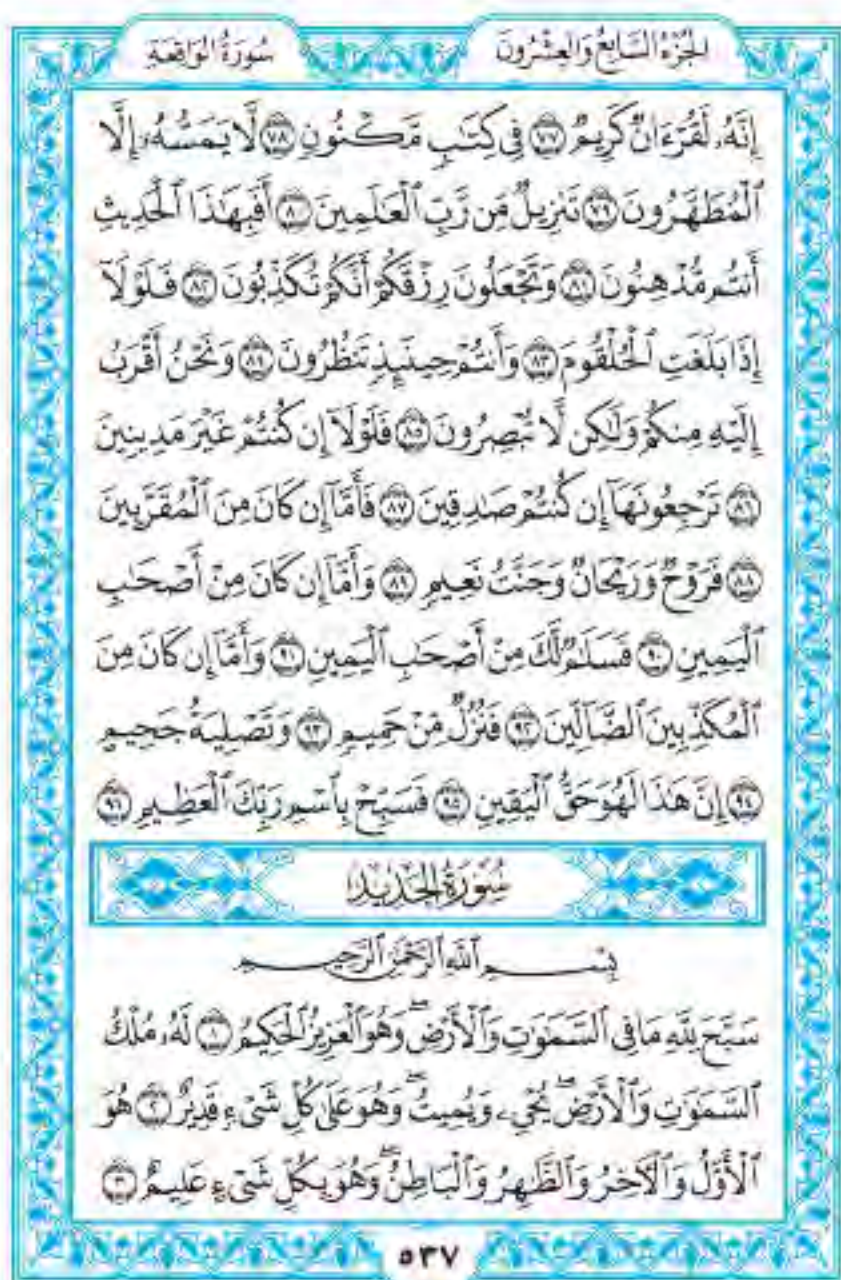 الجُزْءُ السَّابِعُ وَالعِشْرُونَ سُورَةُ الوَاقِعَةِ
إِنَّهُۥ لَقُرْءَانٌ كَرِيمٌ ٧٧ فِى كِتَٰبٍ مَّكْنُونٍ ٧٨ لَّا يَمَسُّهُۥٓ إِلَّا
ٱلْمُطَهَّرُونَ ٧٩ تَنزِيلٌ مِّن رَّبِّ ٱلْعَٰلَمِينَ ٨٠ أَفَبِهَٰذَا ٱلْحَدِيثِ
أَنتُم مُّدْهِنُونَ ٨١ وَتَجْعَلُونَ رِزْقَكُمْ أَنَّكُمْ تُكَذِّبُونَ ٨٢ فَلَوْلَآ
إِذَا بَلَغَتِ ٱلْحُلْقُومَ ٨٣ وَأَنتُمْ حِينَئِذٍ تَنظُرُونَ ٨٤ وَنَحْنُ أَقْرَبُ
إِلَيْهِ مِنكُمْ وَلَٰكِن لَّا تُبْصِرُونَ ٨٥ فَلَوْلَآ إِن كُنتُمْ غَيْرَ مَدِينِينَ
٨٦ تَرْجِعُونَهَآ إِن كُنتُمْ صَٰدِقِينَ ٨٧ فَأَمَّآ إِن كَانَ مِنَ ٱلْمُقَرَّبِينَ
٨٨ فَرَوْحٌ وَرَيْحَانٌ وَجَنَّتُ نَعِيمٍ ٨٩ وَأَمَّآ إِن كَانَ مِنْ أَصْحَٰبِ
ٱلْيَمِينِ ٩٠ فَسَلَٰمٌ لَّكَ مِنْ أَصْحَٰبِ ٱلْيَمِينِ ٩١ وَأَمَّآ إِن كَانَ مِنَ
ٱلْمُكَذِّبِينَ ٱلضَّآلِّينَ ٩٢ فَنُزُلٌ مِّنْ حَمِيمٍ ٩٣ وَتَصْلِيَةُ جَحِيمٍ
٩٤ إِنَّ هَٰذَا لَهُوَ حَقُّ ٱلْيَقِينِ ٩٥ فَسَبِّحْ بِٱسْمِ رَبِّكَ ٱلْعَظِيمِ ٩٦
سُورَةُ الحَدِيدِ
بِسْمِ ٱللَّهِ ٱلرَّحْمَٰنِ ٱلرَّحِيمِ
سَبَّحَ لِلَّهِ مَا فِى ٱلسَّمَٰوَٰتِ وَٱلْأَرْضِۖ وَهُوَ ٱلْعَزِيزُ ٱلْحَكِيمُ ١ لَهُۥ مُلْكُ
ٱلسَّمَٰوَٰتِ وَٱلْأَرْضِۖ يُحْىِۦ وَيُمِيتُۖ وَهُوَ عَلَىٰ كُلِّ شَىْءٍ قَدِيرٌ ٢ هُوَ
ٱلْأَوَّلُ وَٱلْءَاخِرُ وَٱلظَّٰهِرُ وَٱلْبَاطِنُۖ وَهُوَ بِكُلِّ شَىْءٍ عَلِيمٌ ٣
٥٣٧